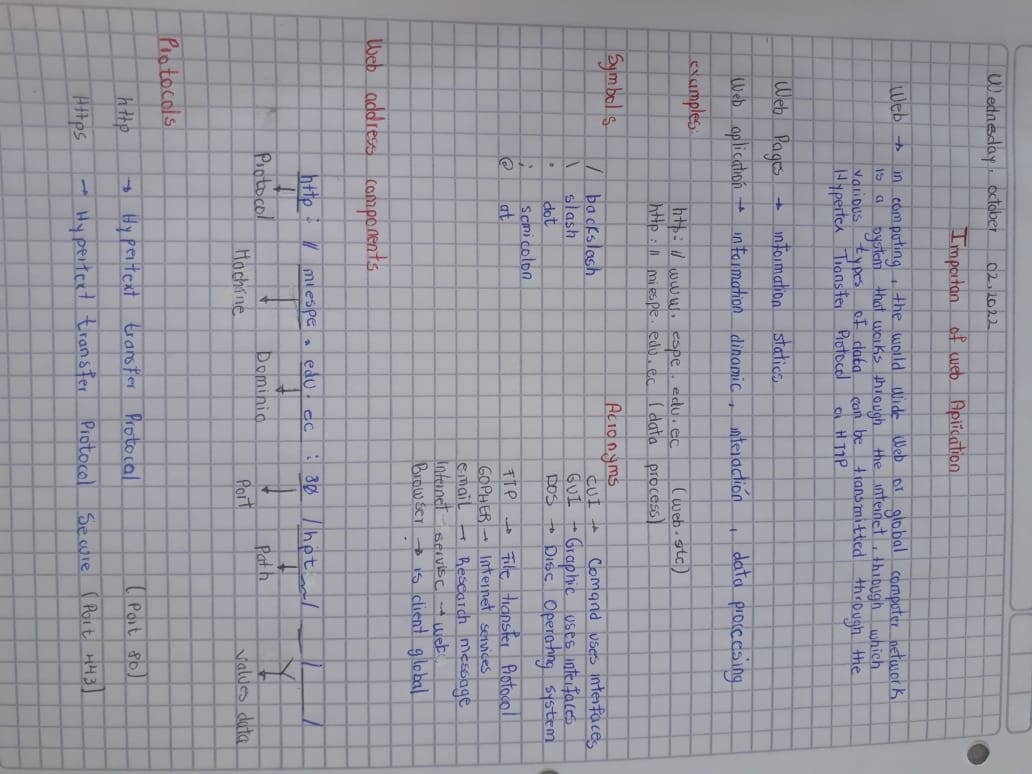 Wednesday, october 02, 2022
Importan of web Aplication
Web → in computing, the world wide web or global computer network
is a system that works through the internet, through which
various types of data can be transmitted through the
Hypertex Transfer Protocol or HTTP
Web Pages → information statics
Web aplication → information dinamic, interaction, data proccesing
examples:
http: // www. espe. edu. ec (web. stc)
http: // miespe. edu. ec (data process)
Symbols
/ backslash
\ slash
. dot
; semicolon
@ at
Acronyms
CUI → Comand uses interfaces
GUI → Graphic uses interfaces
DOS → Disc Operating system
FTP → File transfer Protocol
GOPHER → Internet services
email → Research message
Internet servisc → web
Browser → is client global
Web address components
http: // miespe . edu. ec : 80 / hpt / /
Protocol Machine Dominio Port Path values data
Protocols
http → Hypertext transfer Protocol (Port 80)
Https → Hypertext transfer Protocol Secure (Port 443)